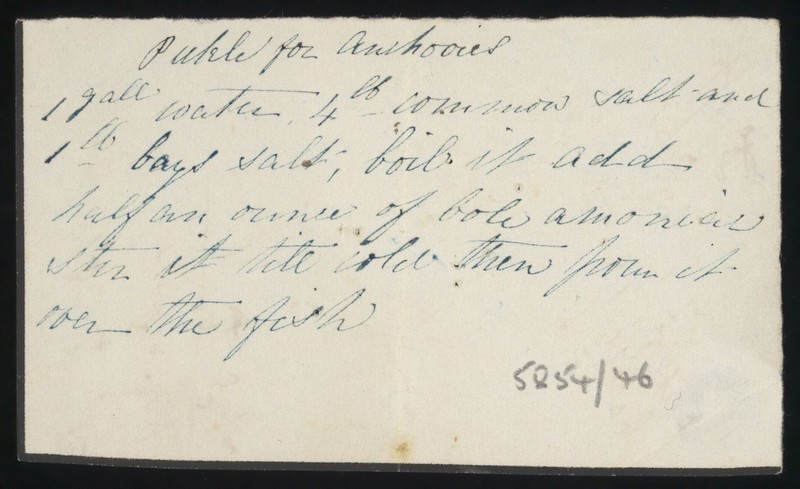 Pickle for Anchovies
1 gall water, 4 lb common salt and
1 lb bays salt, boil it add
half an ounce of bole amoniac
stir it till cold then pour it
over the fish
5854/46